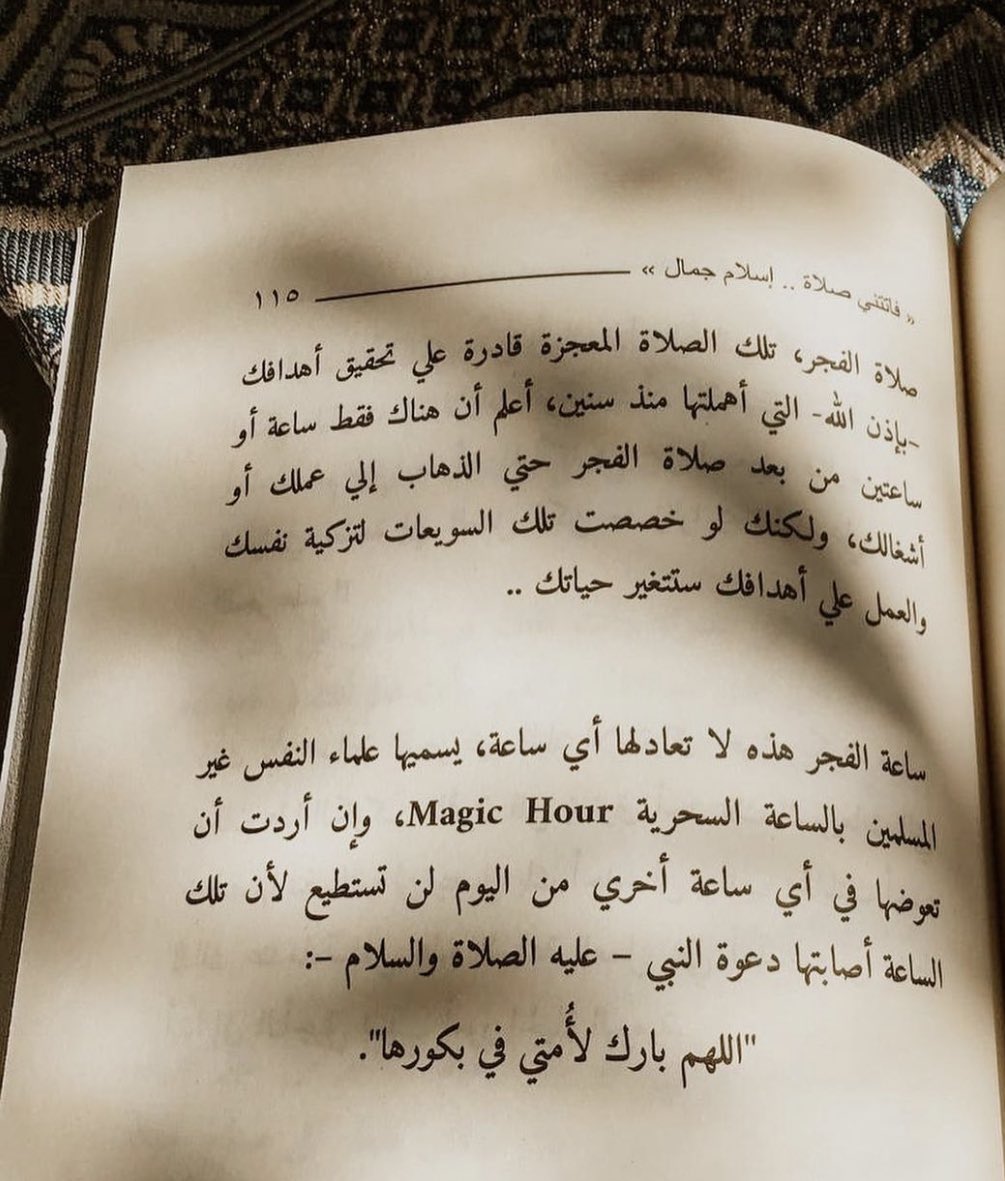 « فاتتني صلاة .. إسلام جمال » ١١٥
صلاة الفجر، تلك الصلاة المعجزة قادرة علي تحقيق أهدافك
-بإذن الله- التي أهملتها منذ سنين، أعلم أن هناك فقط ساعة أو
ساعتين من بعد صلاة الفجر حتي الذهاب إلي عملك أو
أشغالك، ولكنك لو خصصت تلك السويعات لتزكية نفسك
والعمل علي أهدافك ستتغير حياتك ..
ساعة الفجر هذه لا تعادلها أي ساعة، يسميها علماء النفس غير
المسلمين بالساعة السحرية Magic Hour، وإن أردت أن
تعوضها في أي ساعة أخري من اليوم لن تستطيع لأن تلك
الساعة أصابتها دعوة النبي – عليه الصلاة والسلام –:
"اللهم بارك لأُمتي في بكورها".